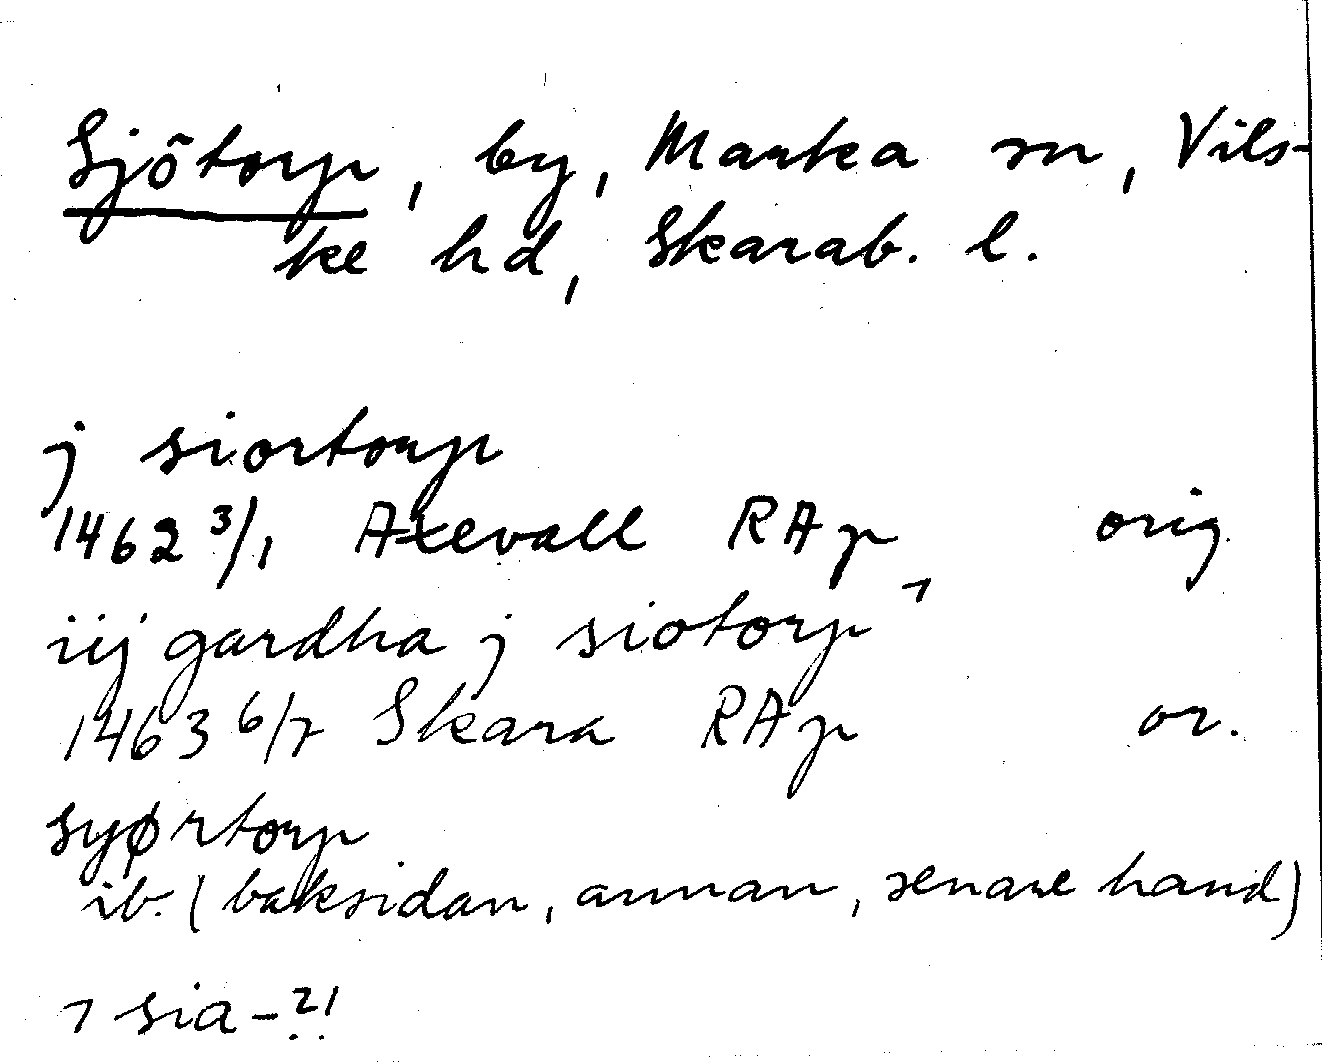 Sjötorp, by, Marka sn, Vils-
ke hd, Skarab. l.
j siortorp
1462 3/1 Axevall RAp orig
iij gardha j siotorp ¬
1463 6/7 Skara RAp or.
syørtorp
ib. (baksidan, annan, senare hand)
¬ sia-?!